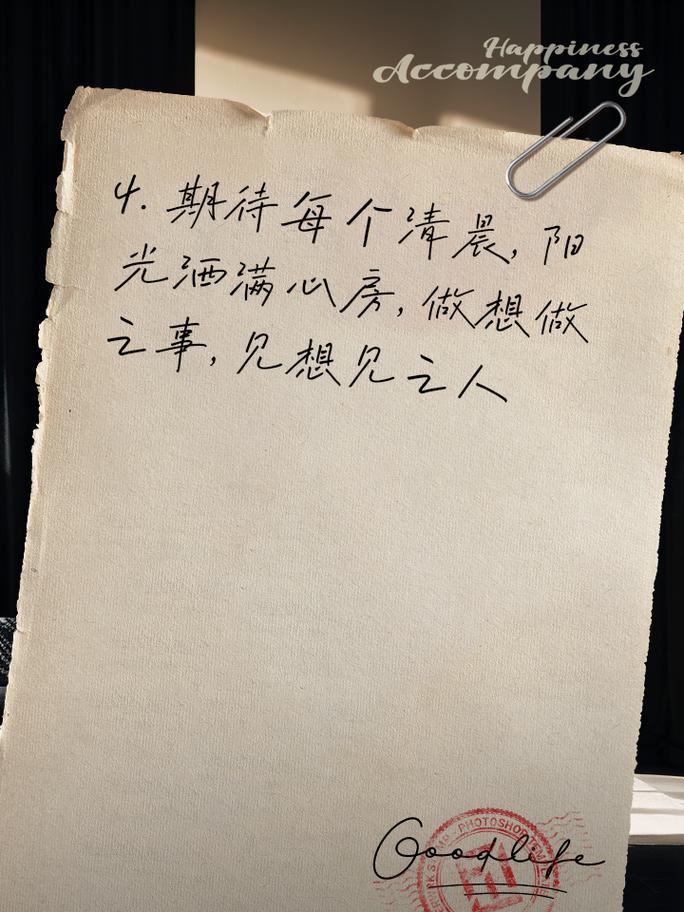 Happiness
Accompany
4. 期待每个清晨，阳
光洒满心房，做想做
之事，见想见之人
PHOTOSHOP
Goodlife